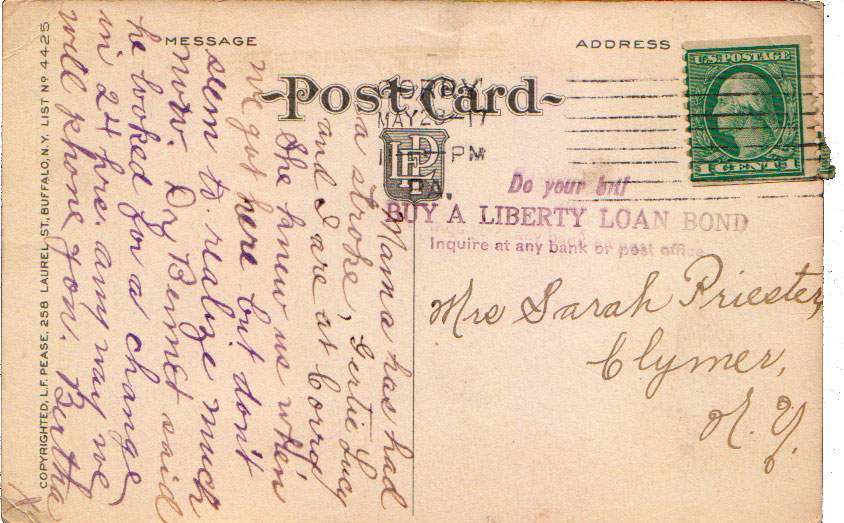 MESSAGE
ADDRESS
Post Card
MAY 2 17
PM
LFP
U.S. POSTAGE
1 CENT 1
Do your bit!
BUY A LIBERTY LOAN BOND
Inquire at any bank or post office
Mama has had
a stroke, Gertie Lucy
and I are at Corrd
She knew us when
we got here but don't
seem to realize much
now. Dr Bemet said
he looked for a change
in 24 hrs. any way we
will phone you. Bertha
Mrs Sarah Priester,
Clymer,
N.Y.
COPYRIGHTED, L.F. PEASE, 258 LAUREL ST., BUFFALO, N.Y. LIST Nº 4425